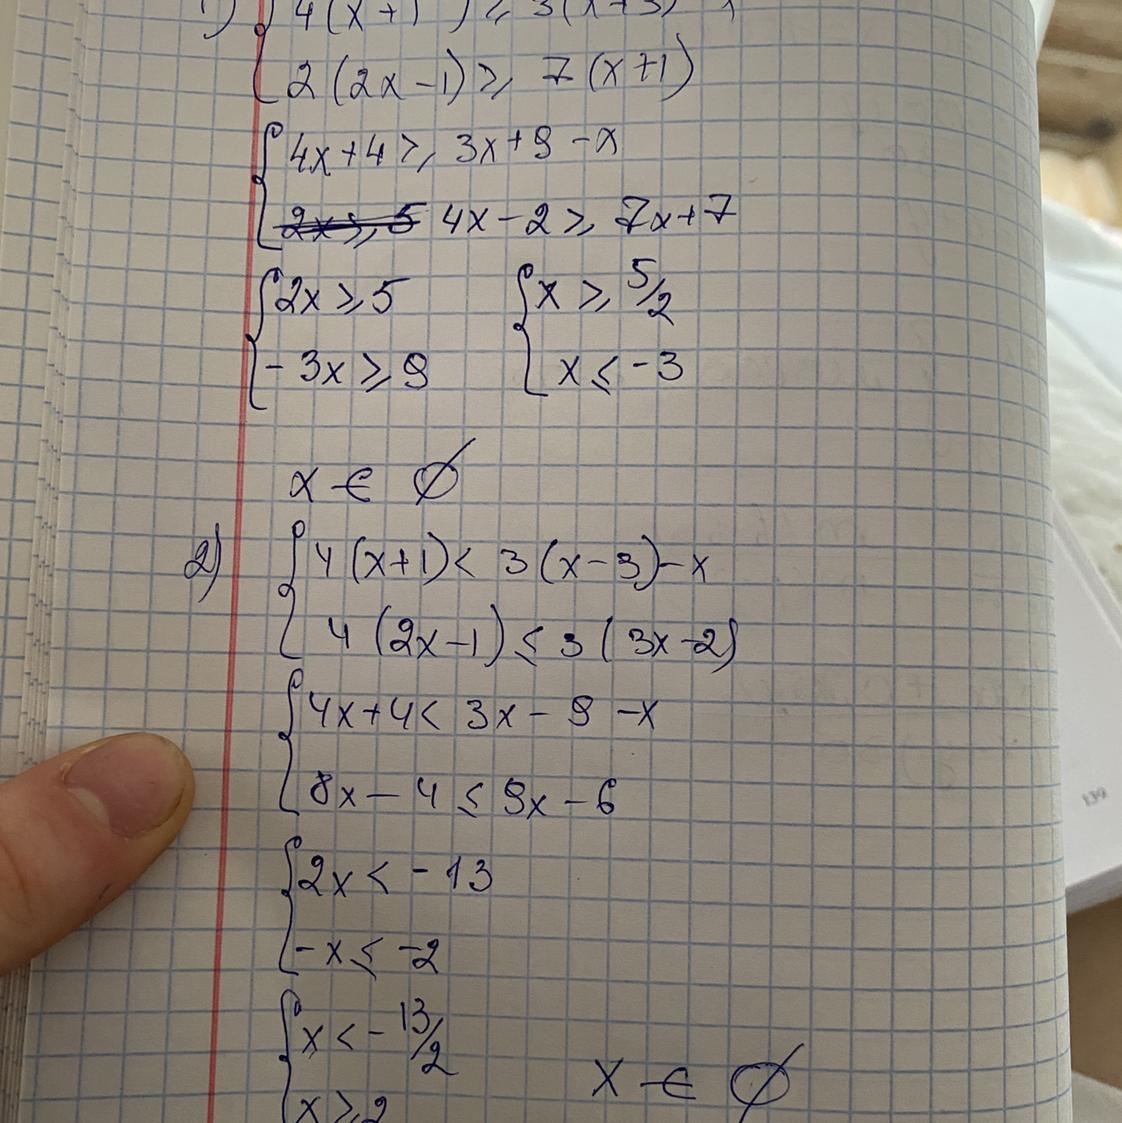 1) { 4(x+1) ≥ 3(x+3) - x
2(2x-1) ≥ 7(x+1)
{ 4x+4 ≥ 3x+9-x
2x≥5 4x-2 ≥ 7x+7
{ 2x ≥ 5 { x ≥ 5/2
-3x ≥ 9 x ≤ -3
x ∈ ∅
2) { 4(x+1) < 3(x-3)-x
4(2x-1) ≤ 3(3x-2)
{ 4x+4 < 3x-9-x
8x-4 ≤ 9x-6
{ 2x < -13
-x ≤ -2
{ x < -13/2
x ≥ 2 x ∈ ∅
139